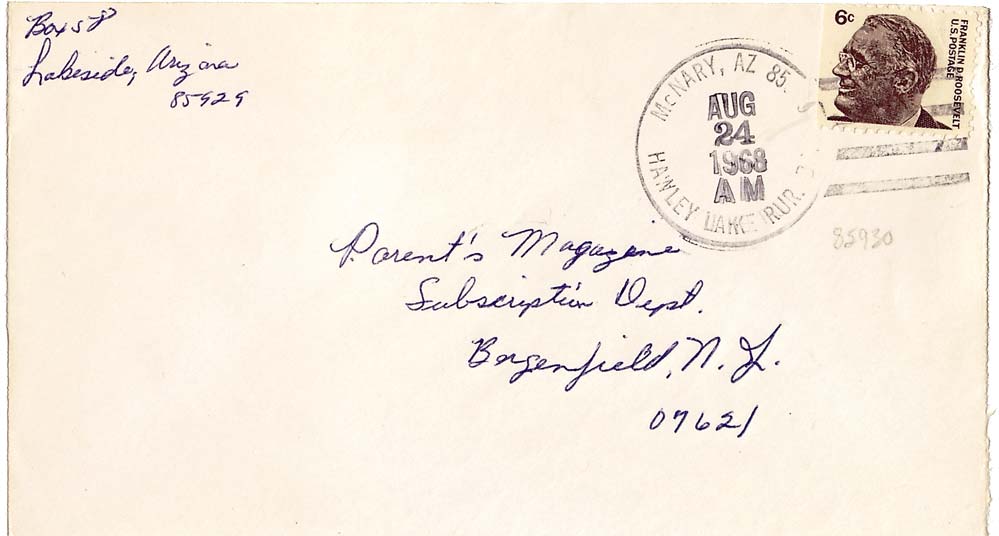 Box 58
Lakeside, Arizona
85929
McNARY, AZ 85
AUG
24
1968
AM
HAWLEY LAKE RUR.
6c
FRANKLIN D. ROOSEVELT
U.S. POSTAGE
Parent's Magazine
Subscription Dept.
Bergenfield, N. J.
07621
85930